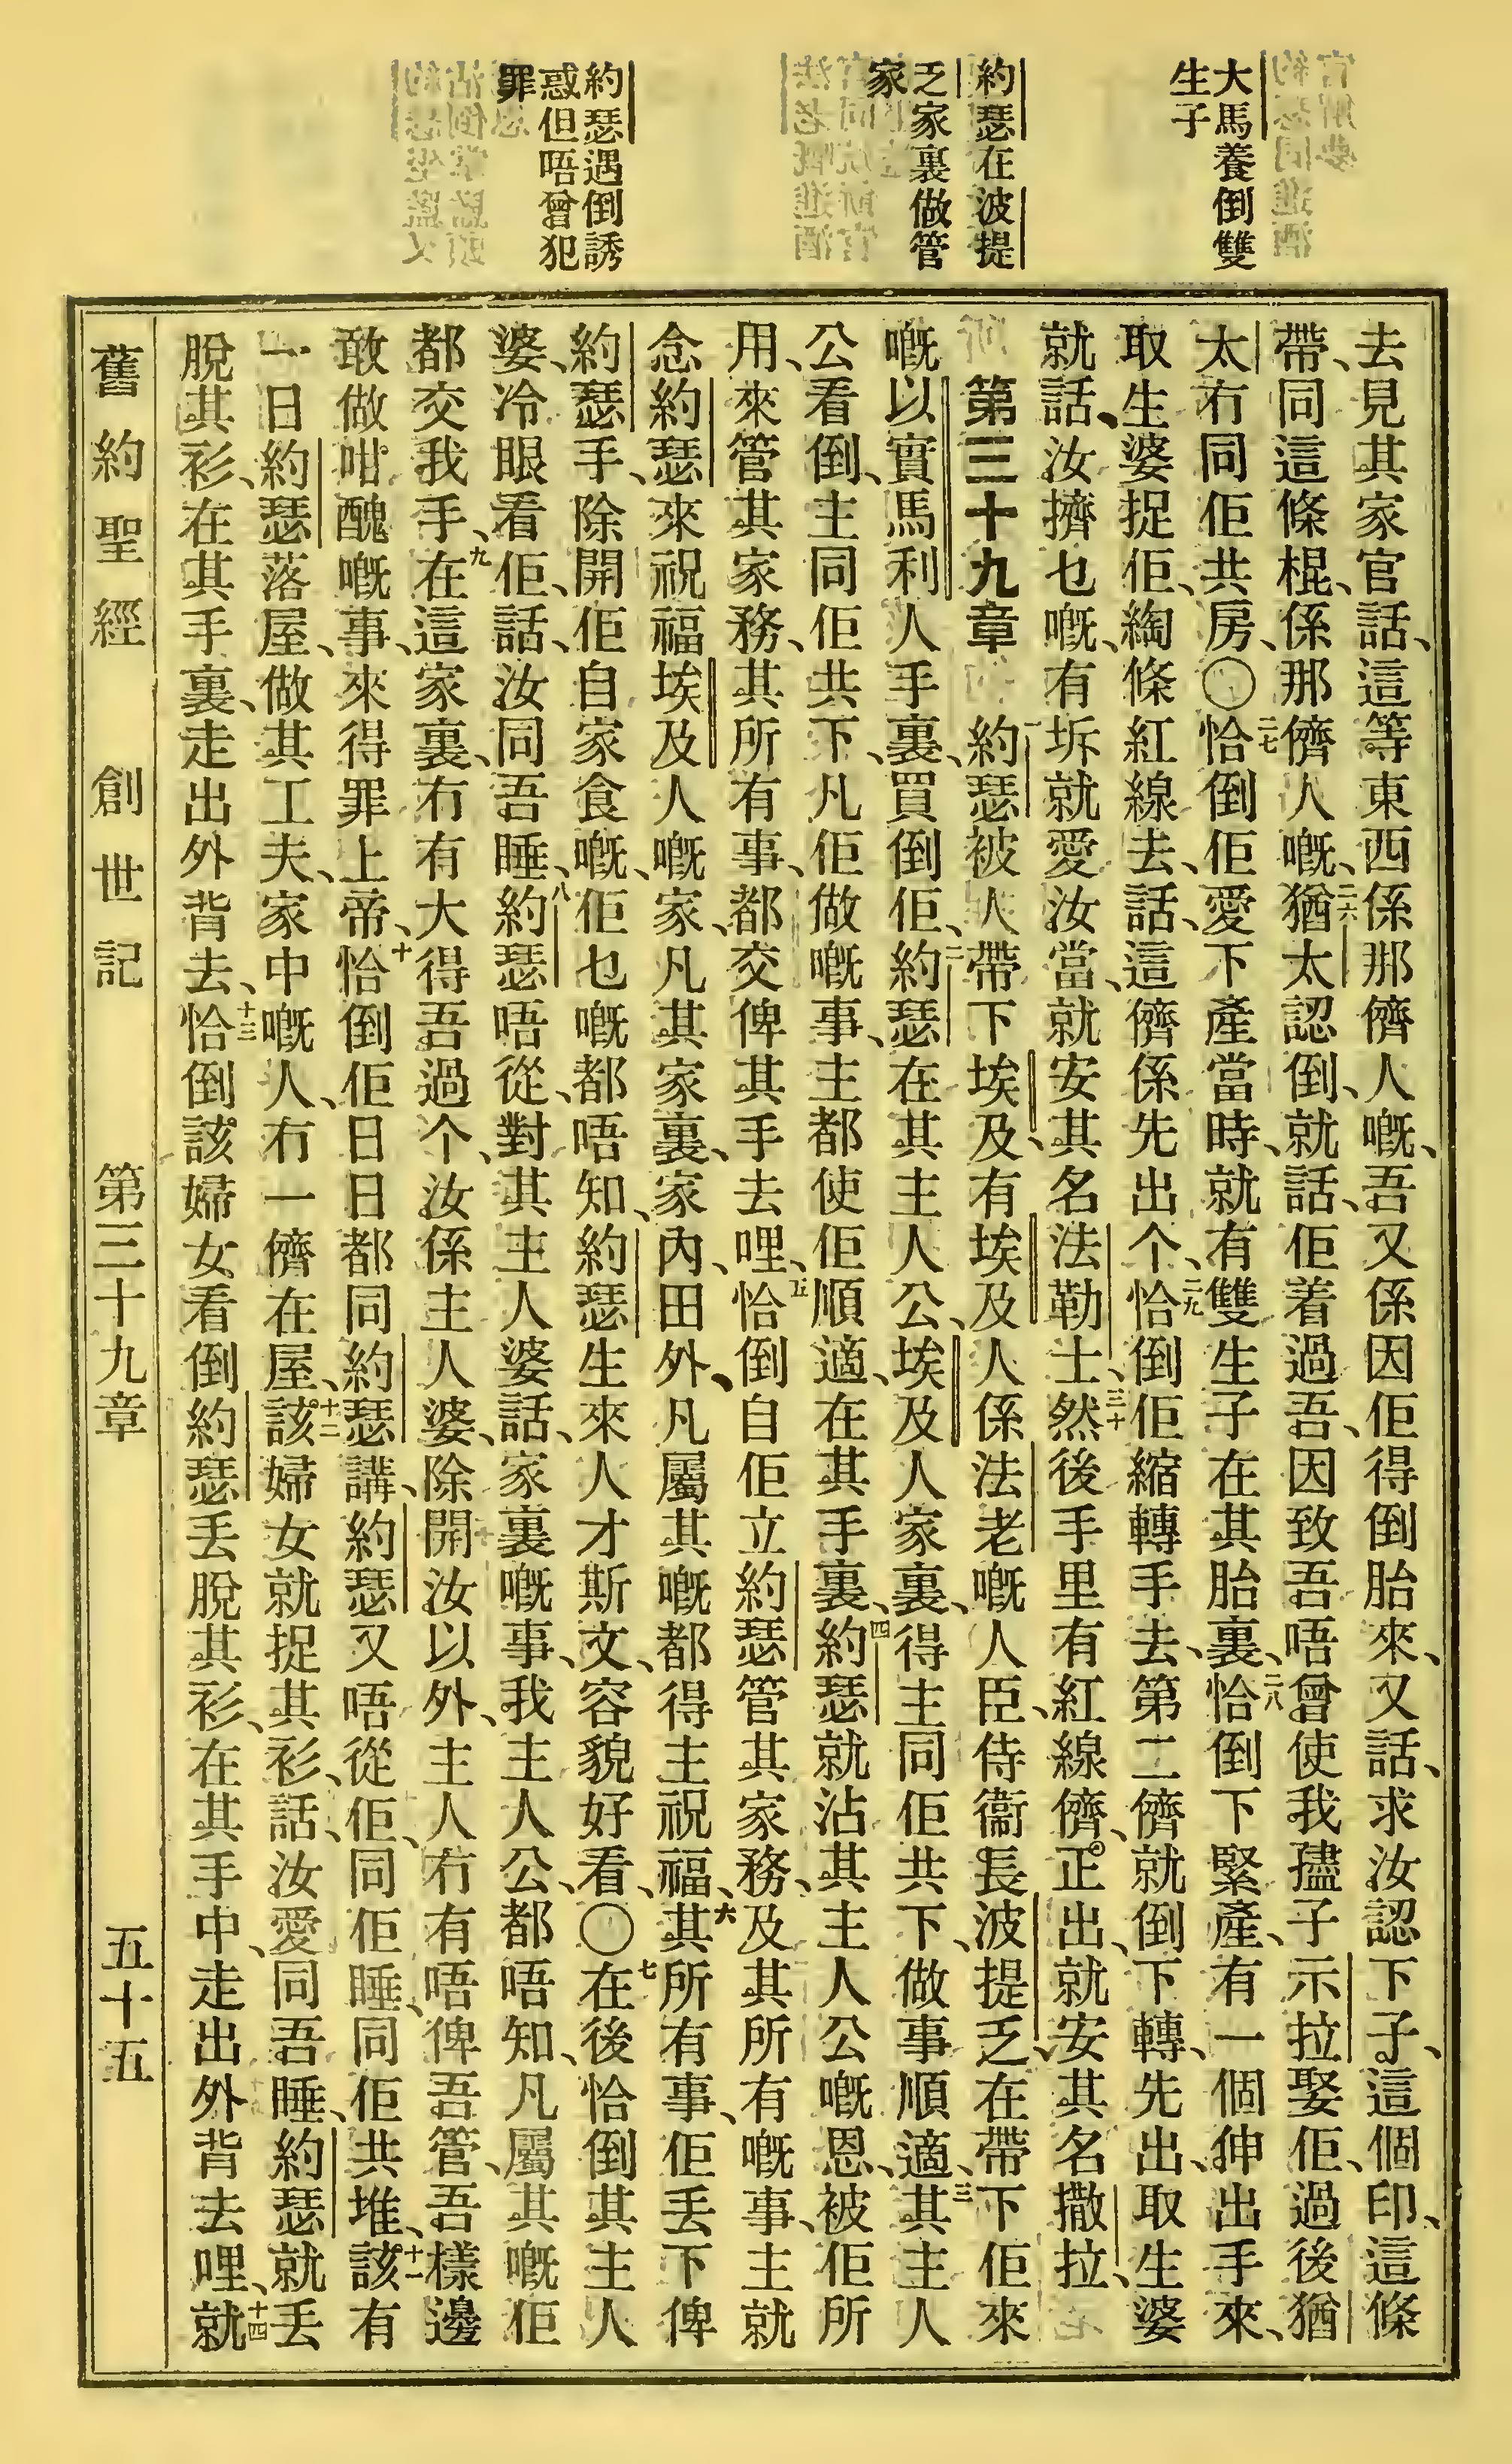 大馬養倒雙
生子
約瑟在波提
乏家裏做管
家
約瑟遇倒誘
惑但唔曾犯
罪
去見其家官話、這等東西係那儕人嘅、吾又係因佢得倒胎來、又話、求汝認下子、這個印、這條
帶、同這條棍、係那儕人嘅、二六猶太認倒、就話、佢着過吾、因致吾唔曾使我孻子示拉娶佢、過後猶
太冇同佢共房、〇二七恰倒佢愛下產當時、就有雙生子在其胎裏、二八恰倒下緊產、有一個伸出手來、
取生婆捉佢、綯條紅線去、話、這儕係先出个、二九恰倒佢縮轉手去、第二儕就倒下轉、先出、取生婆
就話、汝擠乜嘅、有坼就愛汝當、就安其名法勒士、三十然後手里有紅線儕、正出、就安其名撒拉、
第三十九章　一約瑟被人帶下埃及、有埃及人係法老嘅人臣、侍衞長波提乏、在帶下佢來
嘅以實馬利人手裏、買倒佢、二約瑟在其主人公、埃及人家裏、得主同佢共下、做事順適、三其主人
公看倒、主同佢共下、凡佢做嘅事、主都使佢順適、在其手裏、四約瑟就沾其主人公嘅恩、被佢所
用、來管其家務、其所有事、都交俾其手去哩、五恰倒自佢立約瑟管其家務、及其所有嘅事、主就
念約瑟來祝福埃及人嘅家、凡其家裏、家內、田外、凡屬其嘅都得主祝福、六其所有事、佢丟下俾
約瑟手、除開佢自家食嘅、佢乜嘅都唔知、約瑟生來人才斯文、容貌好看、〇七在後恰倒其主人
婆、冷眼看佢、話、汝同吾睡、八約瑟唔從、對其主人婆話、家裏嘅事、我主人公、都唔知、凡屬其嘅佢
都交我手、九在這家裏、冇有大得吾過个、汝係主人婆、除開汝以外、主人冇有唔俾吾管、吾樣邊
敢做咁醜嘅事、來得罪上帝、十恰倒佢日日都同約瑟講、約瑟又唔從佢、同佢睡、同佢共堆、十一該有
一日約瑟落屋、做其工夫、家中嘅人、冇一儕在屋、十二該婦女就捉其衫、話、汝愛同吾睡、約瑟就丟
脫其衫、在其手裏、走出外背去、十三恰倒該婦女看倒約瑟丟脫其衫、在其手中、走出外背去哩、十四就
舊約聖經　創世記　第三十九章　五十五